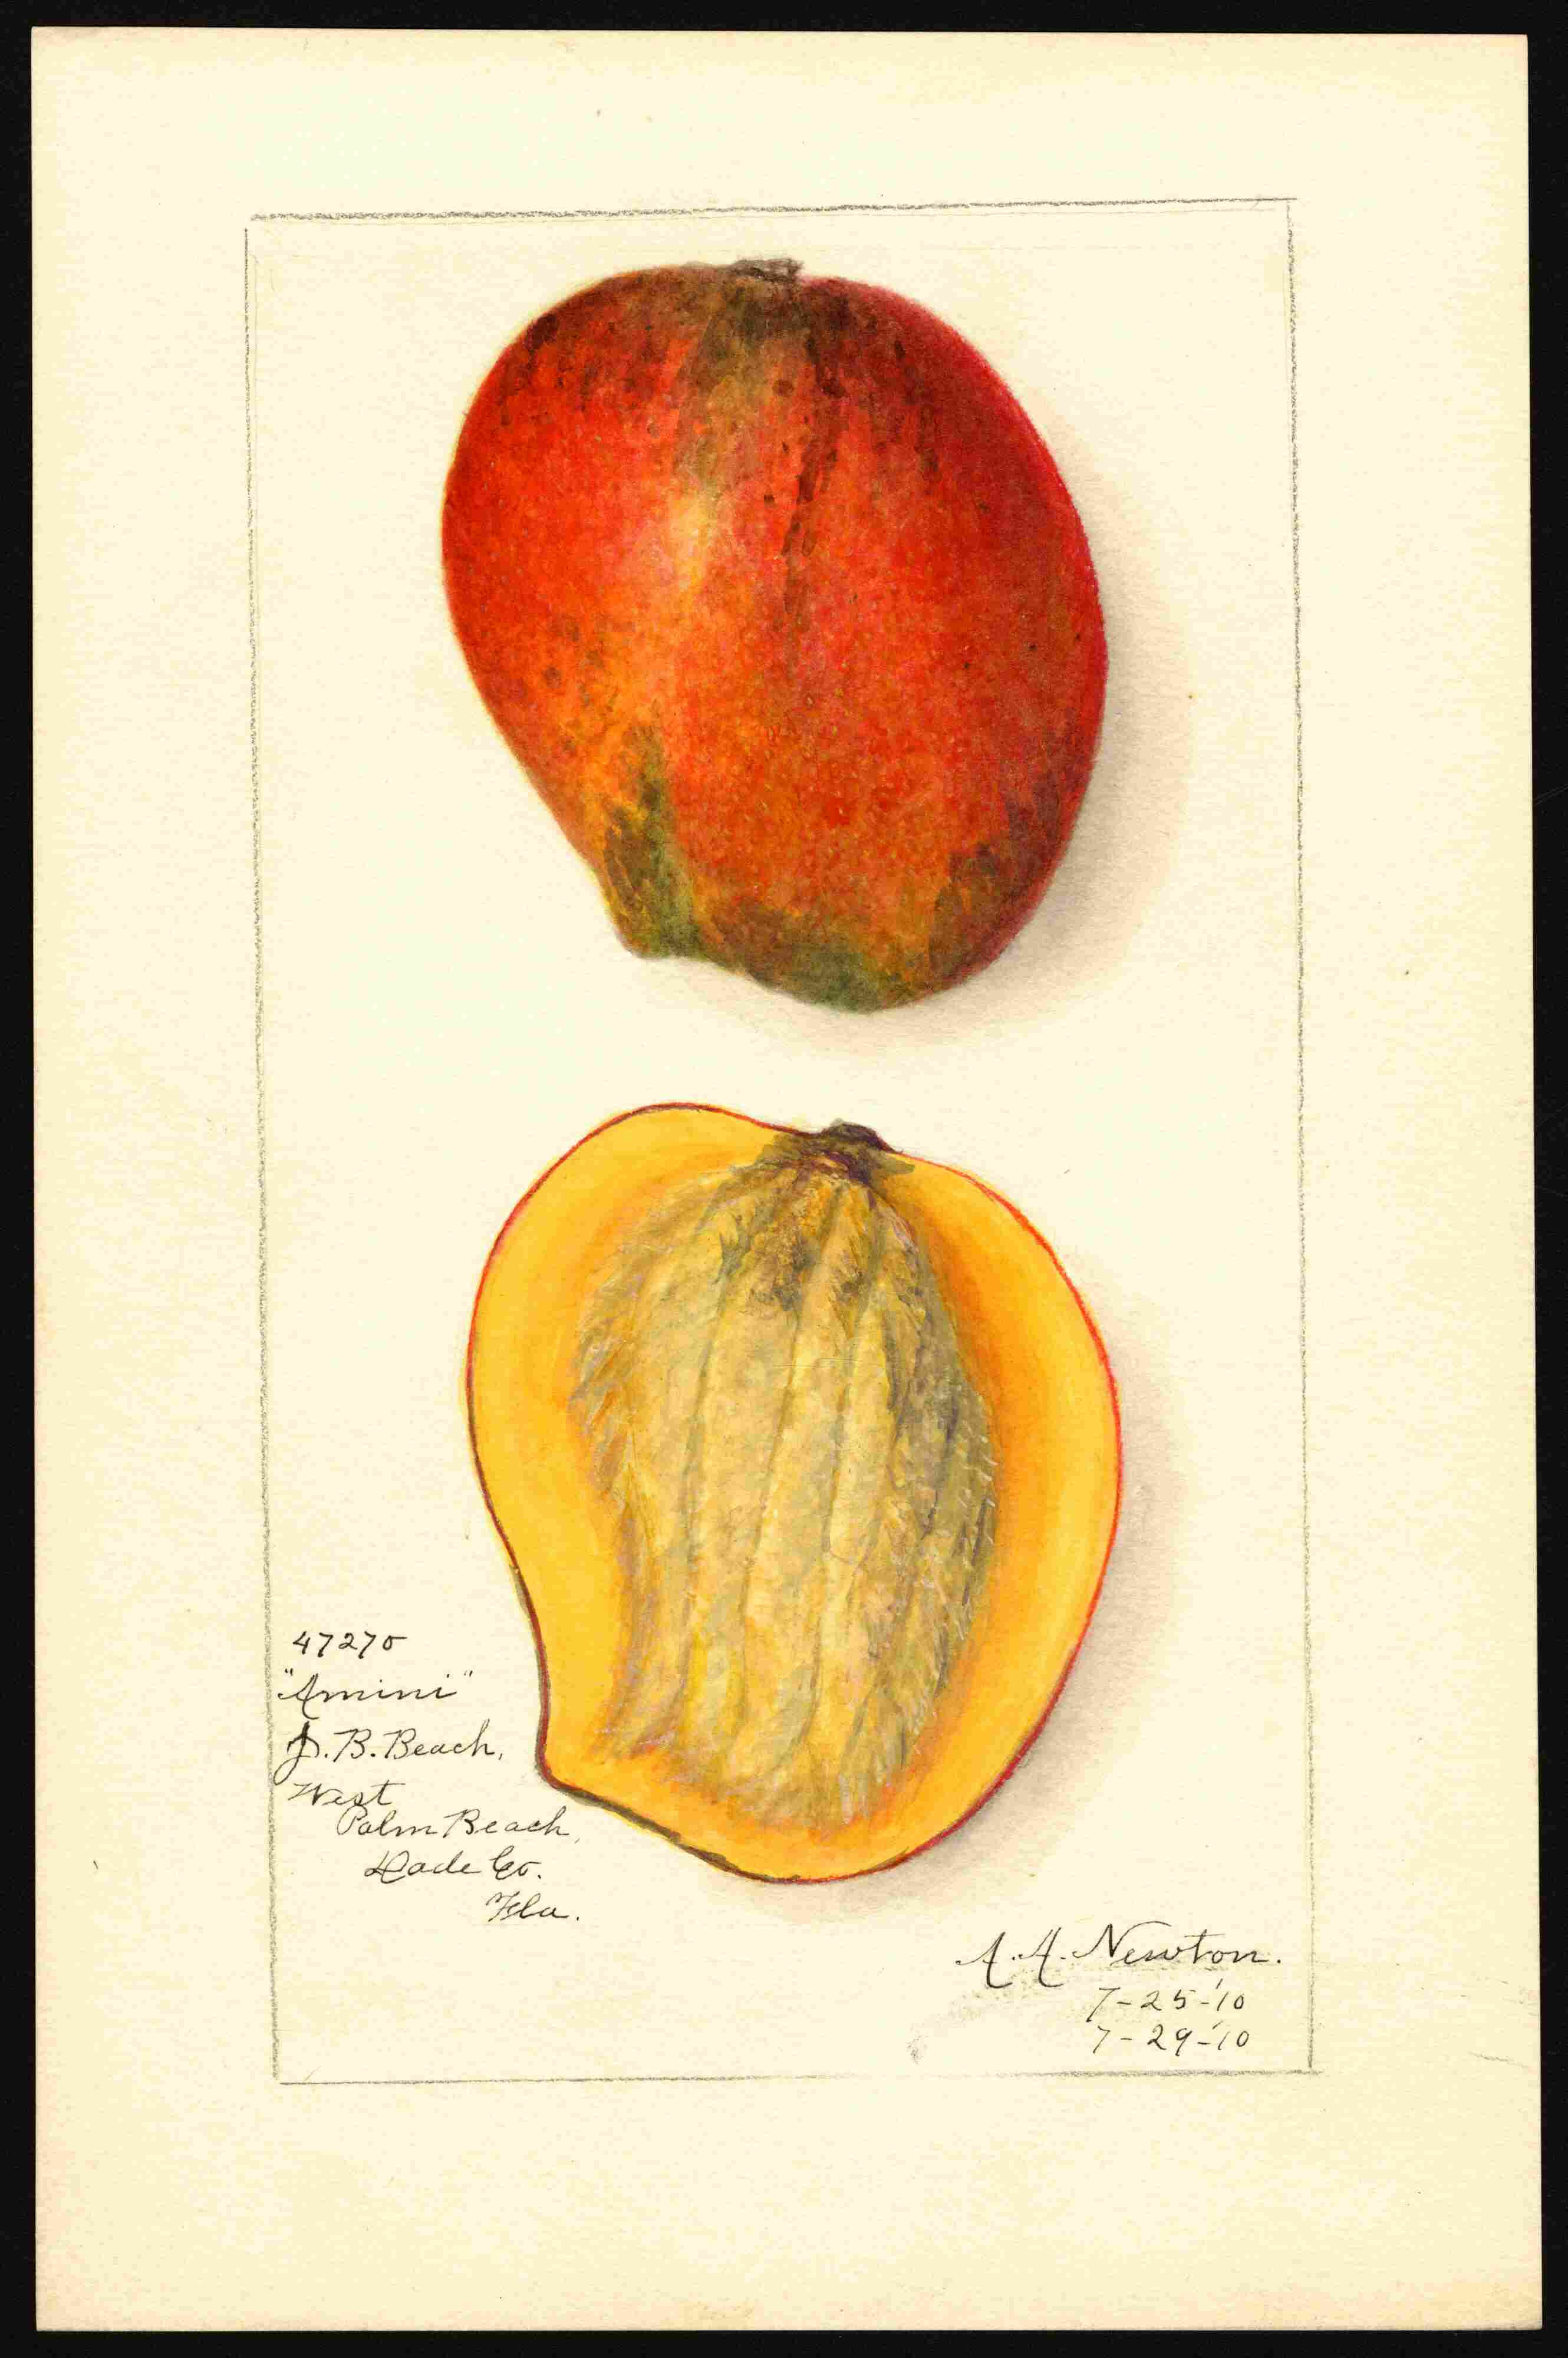 47270
"Amini"
J. B. Beach,
West
Palm Beach,
Dade Co.
Fla.
A. A. Newton.
7-25-'10
7-29-'10